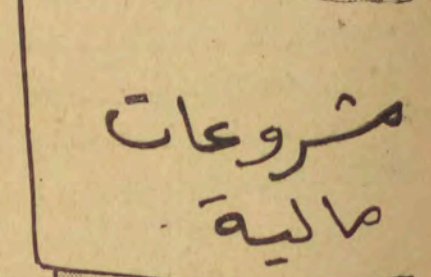 مشروعات
مالية